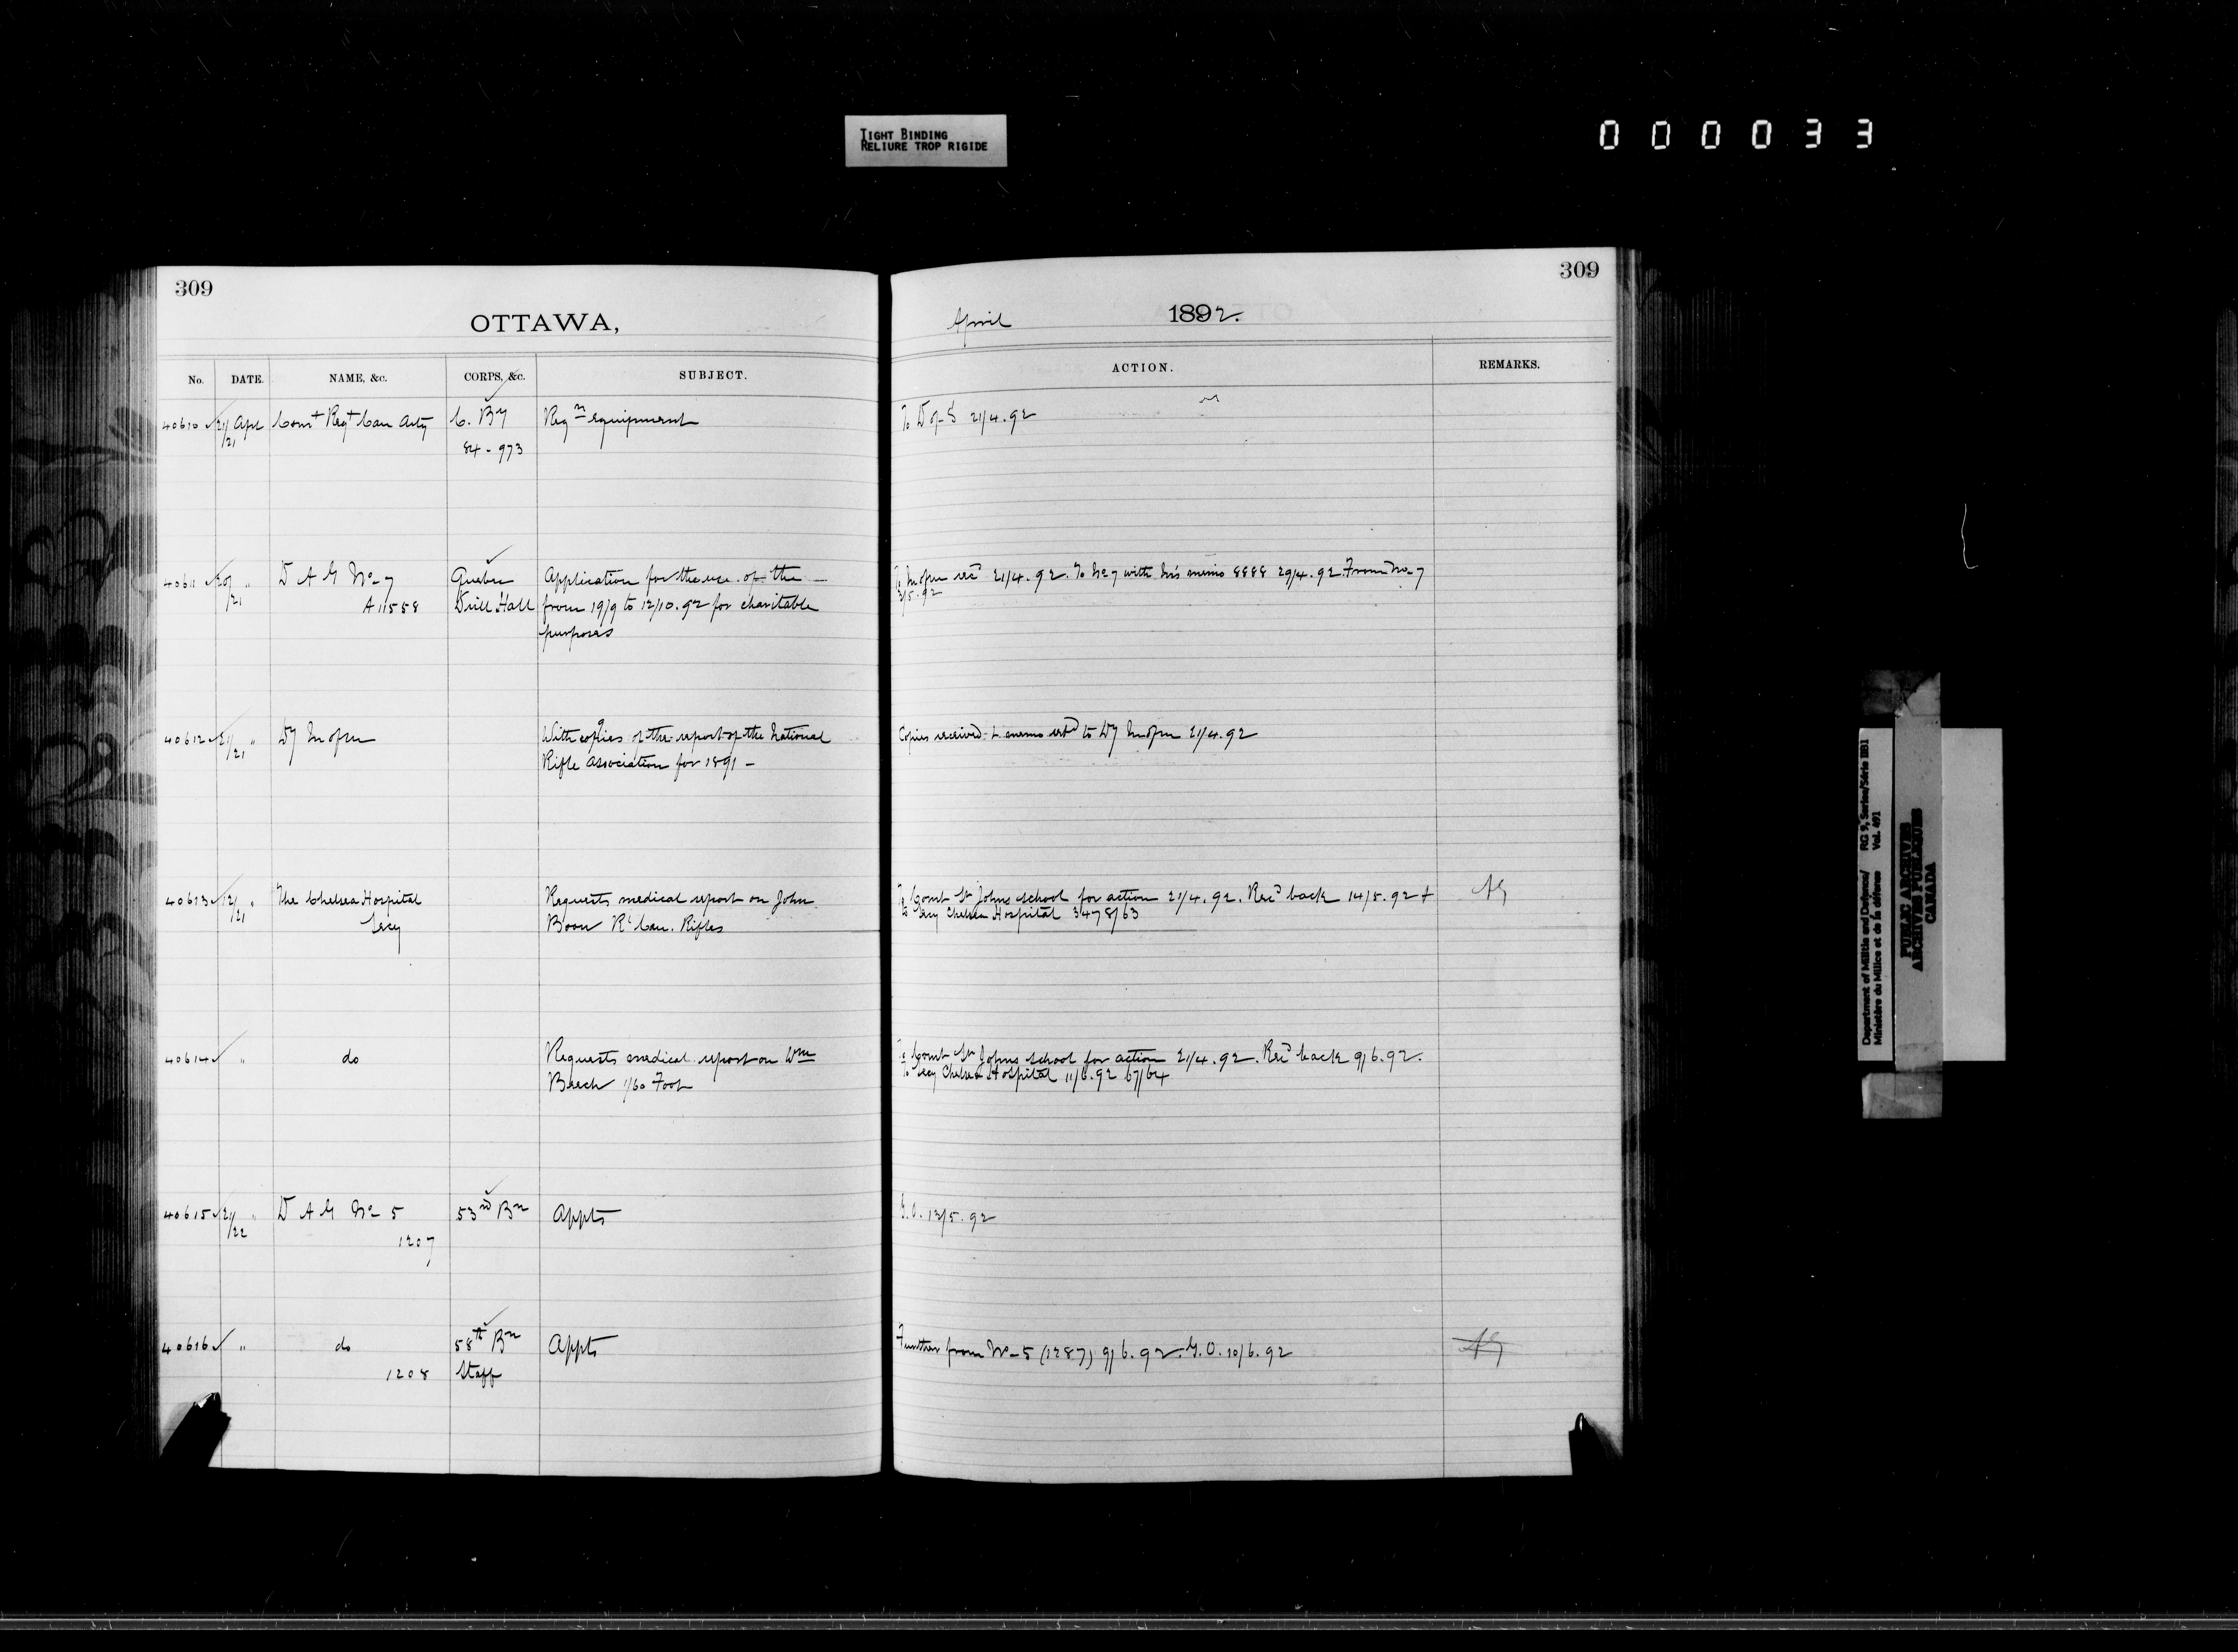 TIGHT BINDING
RELIURE TROP RIGIDE
000033
309
OTTAWA,
No. DATE. NAME, &c. CORPS, &c. SUBJECT.
40610 21/21 Apl Comt Regt Can Arty C. By Regn equipment
84 - 973
40611 20/21 " D A G No 7 Quebec Application for the use of the —
A 11558 Drill Hall from 19/9 to 12/10.92 for charitable
purposes
40612 21/21 " Dy M of M With 9 copies of the report of the National
Rifle Association for 1891 -
40613 12/21 " The Chelsea Hospital Requests medical report on John
Secy Boon Rl Can. Rifles
40614 " do Requests medical report on Wm
Beech 1/60 Foot
40615 21/22 " D A G No 5 53rd Bn Appts
1207
40616 " do 58th Bn Appts
1208 Staff
309
April 1892.
ACTION. REMARKS.
To D of S 21/4.92
To M of M recd 21/4.92. To No 7 with his memo 8888 29/4.92. From No 7
3/5.92
Copies received & memo retd to Dy M of M 21/4.92
To Comt St Johns school for action 21/4.92. Recd back 14/5.92 &
to Secy Chelsea Hospital 3478/63
To Comt St Johns school for action 21/4.92. Recd back 9/6.92.
To Secy Chelsea Hospital 11/6.92 67/64
G.O. 13/5.92
Further from No 5 (1287) 9/6.92. G.O. 10/6.92
Department of Militia and Defence/ RG 9, Series/Série IIB1
Ministère du Milice et de la défence Vol. 491
PUBLIC ARCHIVES
ARCHIVES PUBLIQUES
CANADA